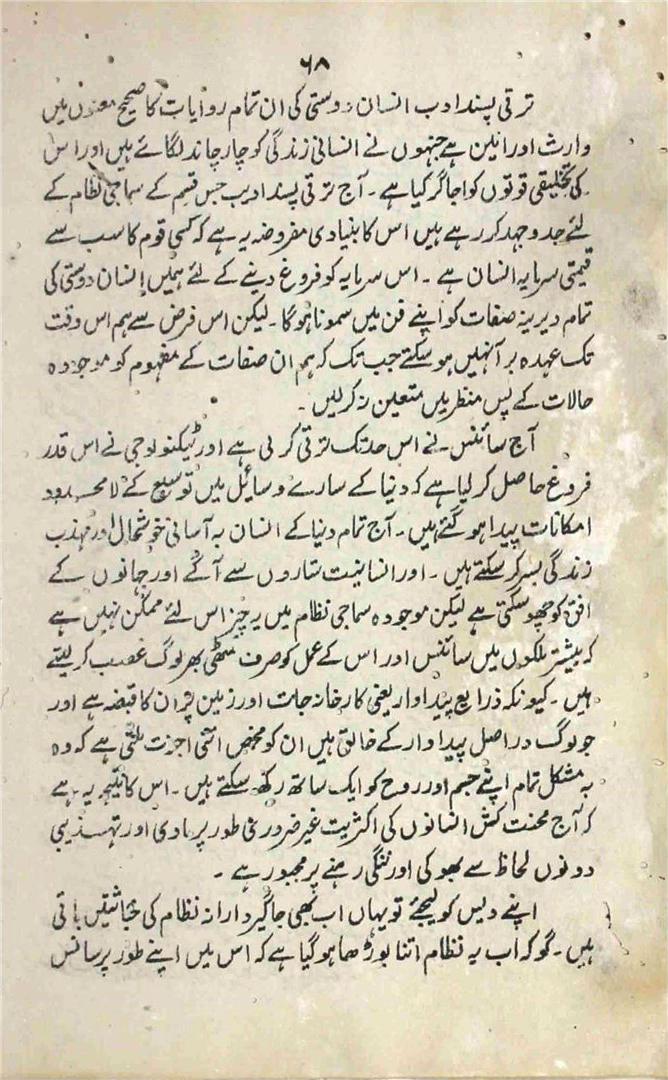 ۶۸
ترقی پسند ادب انسان دوستی کی ان تمام روایات کا صحیح معنوں میں
وارث اور امین ہے جنہوں نے انسانی زندگی کو چار چاند لگائے ہیں اور اس
کی تخلیقی قوتوں کو اجاگر کیا ہے ۔ آج ترقی پسند ادیب جس قسم کے سماجی نظام کے
لئے جدوجہد کر رہے ہیں اس کا بنیادی مفروضہ یہ ہے کہ کسی قوم کا سب سے
قیمتی سرمایہ انسان ہے ۔ اس سرمایہ کو فروغ دینے کے لئے ہمیں انسان دوستی کی
تمام دیرینہ صفات کو اپنے فن میں سمونا ہوگا ۔ لیکن اس فرض سے ہم اس وقت
تک عہدہ برآ نہیں ہو سکتے جب تک کہ ہم ان صفات کے مفہوم کو موجودہ
حالات کے پس منظر میں متعین نہ کر لیں ۔
آج سائنس نے اس حد تک ترقی کر لی ہے اور ٹیکنولوجی نے اس قدر
فروغ حاصل کر لیا ہے کہ دنیا کے سارے وسائل میں توسیع کے لامحدود
امکانات پیدا ہو گئے ہیں ۔ آج تمام دنیا کے انسان بہ آسانی خوشحال اور مہذب
زندگی بسر کر سکتے ہیں ۔ اور انسانیت ستاروں سے آگے اور جہانوں کے
افق کو چھو سکتی ہے لیکن موجودہ سماجی نظام میں یہ چیز اس لئے ممکن نہیں ہے
کہ بیشتر ملکوں میں سائنس اور اس کے عمل کو صرف مٹھی بھر لوگ غصب کر لیتے
ہیں ۔ کیونکہ ذرایع پیداوار یعنی کارخانہ جات اور زمین پر ان کا قبضہ ہے اور
جو لوگ دراصل پیداوار کے خالق ہیں ان کو محض اتنی اجرت ملتی ہے کہ وہ
بہ مشکل تمام اپنے جسم اور روح کو ایک ساتھ رکھ سکتے ہیں ۔ اس کا نتیجہ یہ ہے
کہ آج محنت کش انسانوں کی اکثریت غیر ضروری طور پر مادی اور تہذیبی
دونوں لحاظ سے بھوکی اور ننگی رہنے پر مجبور ہے ۔
اپنے دیس کو لیجئے تو یہاں اب بھی جاگیردارانہ نظام کی خباثتیں باقی
ہیں ۔ گو کہ اب یہ نظام اتنا بوڑھا ہو گیا ہے کہ اس میں اپنے طور پر سانس